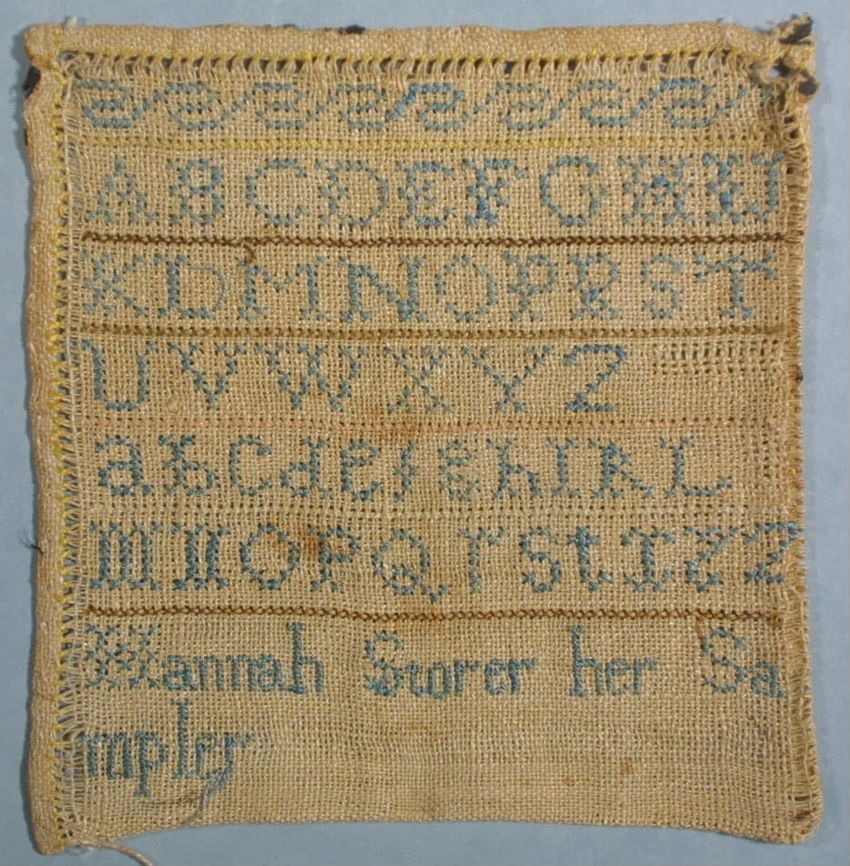 A B C D E F G H I J
K D M N O P R S T
U V W X Y Z
a b c d e f g h I K L
m n O P Q r S t I Y Z
Hannah Storer her Sa
mpler